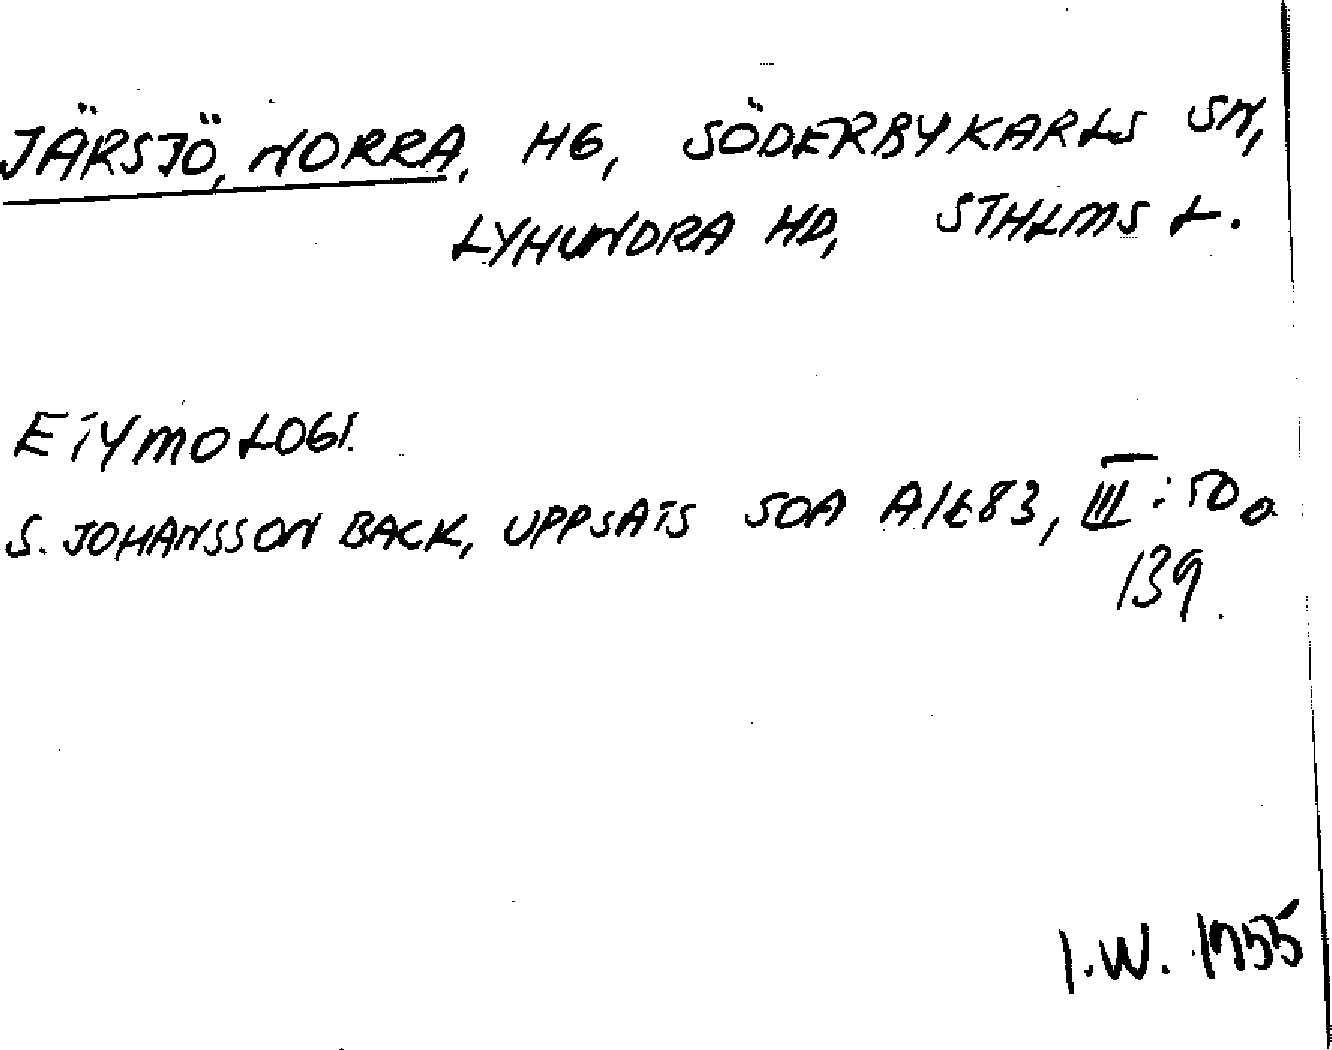 JÄRSJÖ, NORRA, HG, SÖDERBYKARLS SN,
LYHUNDRA HD, STHLMS L.
ETYMOLOGI.
S. JOHANSSON BACK, UPPSATS SOA A1E83, III: 50 o
139.
I.W. 1955